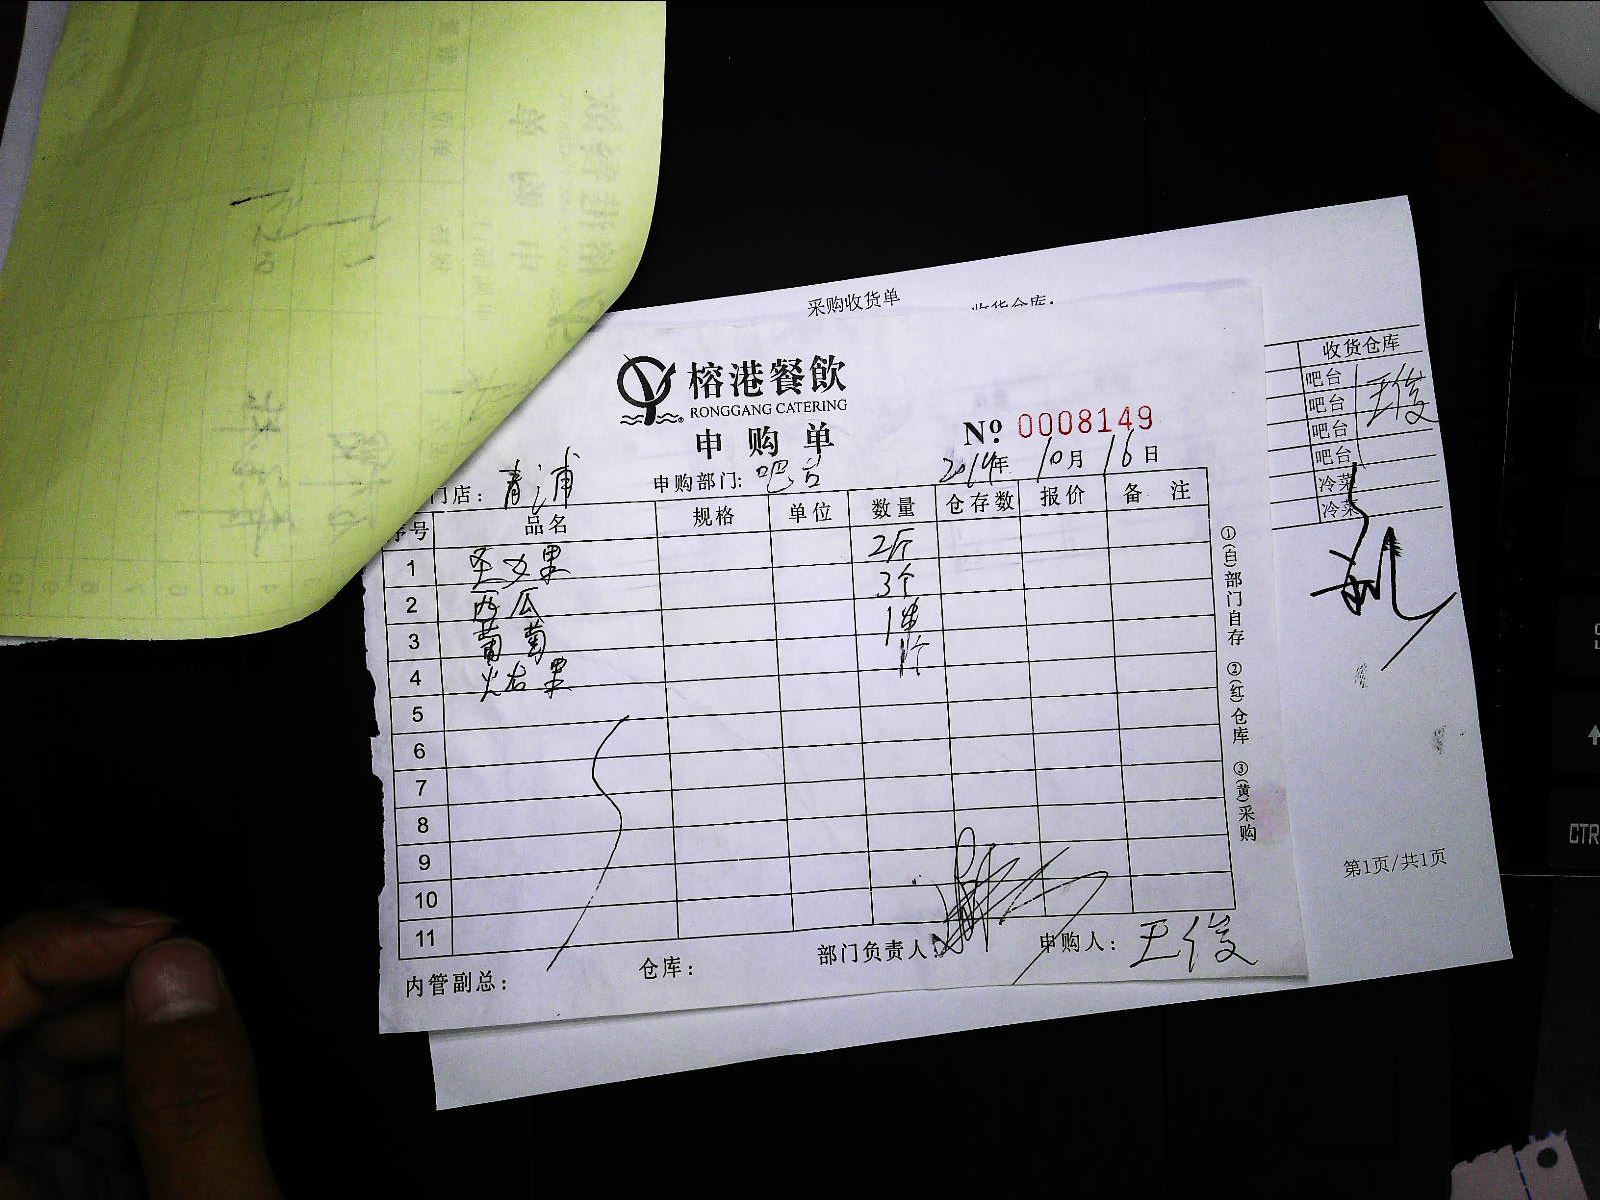 采购收货单
收货仓库:
榕港餐飲
RONGGANG CATERING
申购单
№ 0008149
门店: 青浦 申购部门: 吧台 2014年 10月 16日
序号 品名 规格 单位 数量 仓存数 报价 备注
1 圣女果 2斤
2 西瓜 3个
3 葡萄 1串
4 火龙果 1个
5
6
7
8
9
10
11
内管副总: 仓库: 部门负责人: 申购人: 王俊
①(白)部门自存 ②(红)仓库 ③(黄)采购
收货仓库
吧台 王俊
吧台
吧台
吧台
冷菜
冷菜
第1页/共1页
CTR